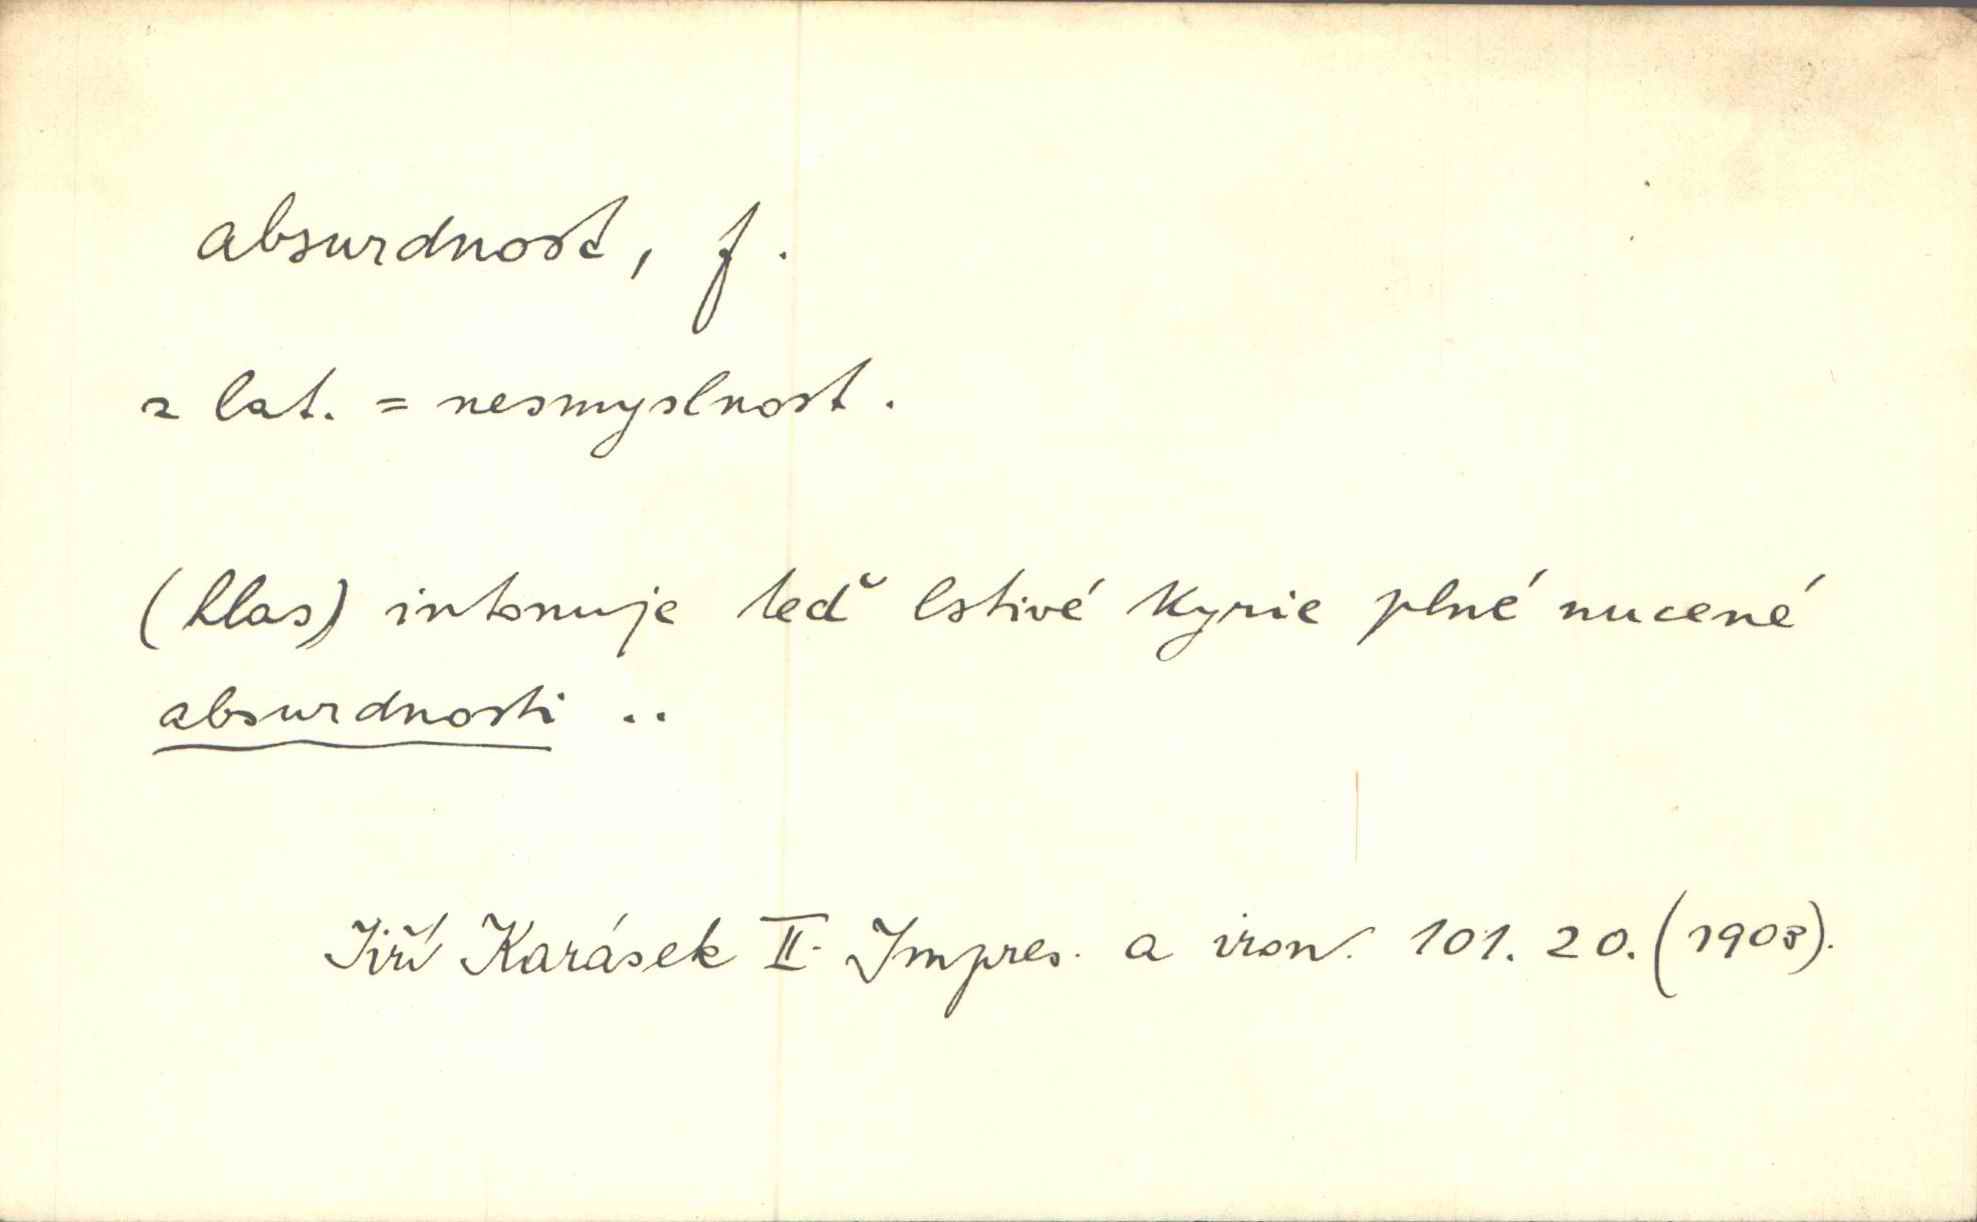 absurdnost, f.
z lat. = nesmyslnost.
(hlas) intonuje teď lstivé Kyrie plné nucené
absurdnosti ..
Jiří Karásek II. Impres. a iron. 101. 20. (1903).